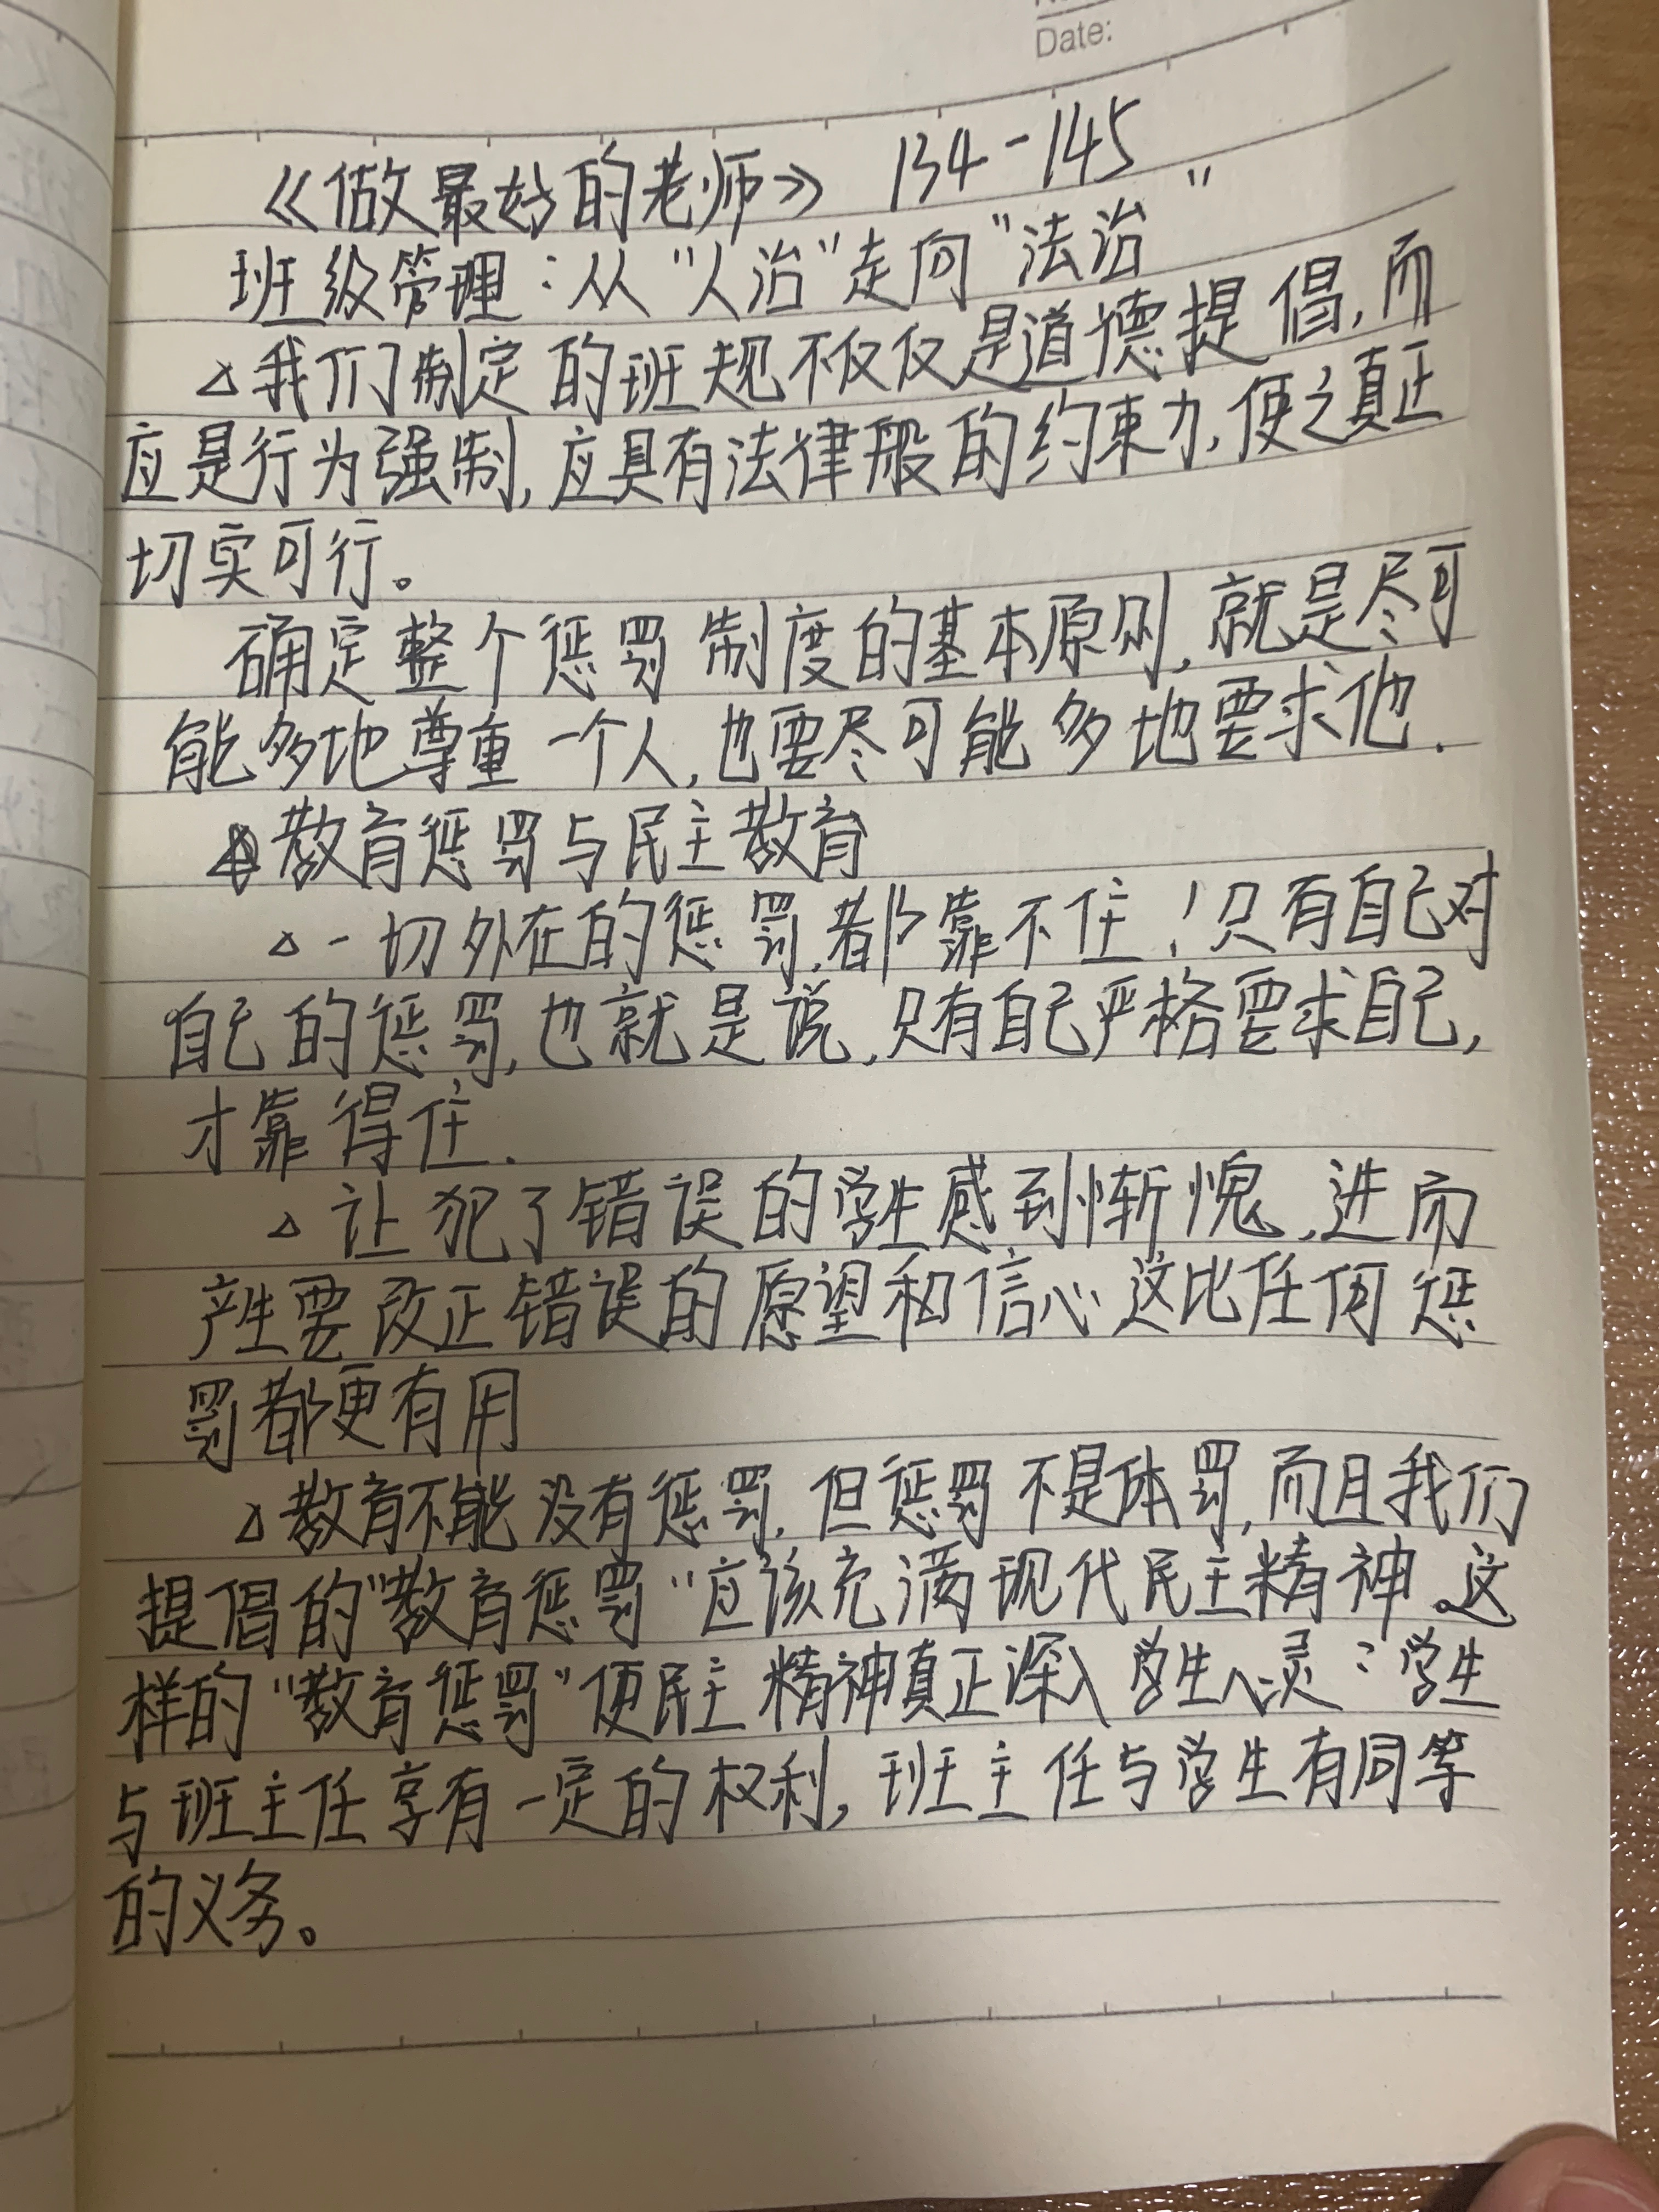 Date:
《做最好的老师》 134-145
班级管理：从"人治"走向"法治"
△我们制定的班规不仅仅是道德提倡，而
应是行为强制，应具有法律般的约束力，使之真正
切实可行。
确定整个惩罚制度的基本原则，就是尽可
能多地尊重一个人，也要尽可能多地要求他．
教育惩罚与民主教育
△一切外在的惩罚，都靠不住！只有自己对
自己的惩罚，也就是说，只有自己严格要求自己，
才靠得住．
△让犯了错误的学生感到惭愧，进而
产生要改正错误的愿望和信心，这比任何惩
罚都更有用
△教育不能没有惩罚，但惩罚不是体罚，而且我们
提倡的"教育惩罚"应该充满现代民主精神。这
样的"教育惩罚"使民主精神真正深入学生心灵：学生
与班主任享有一定的权利，班主任与学生有同等
的义务。